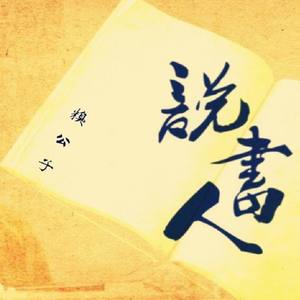 說書人
公子